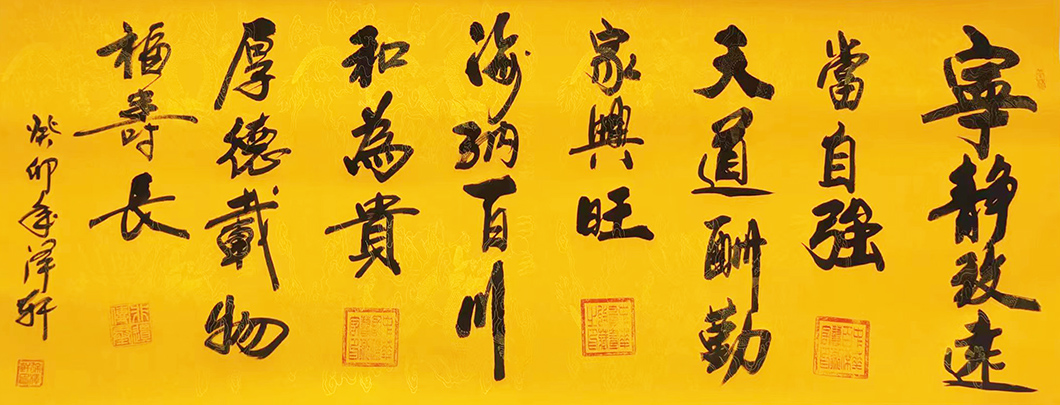 寧靜致遠
當自強
天道酬勤
家興旺
海納百川
和為貴
厚德載物
福壽長
癸卯年澤軒